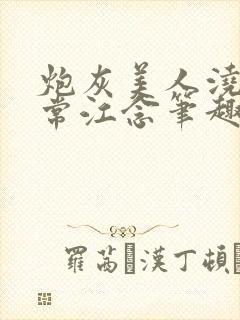 炮灰美人澆
常江念筆趣
羅茜漢丁頓